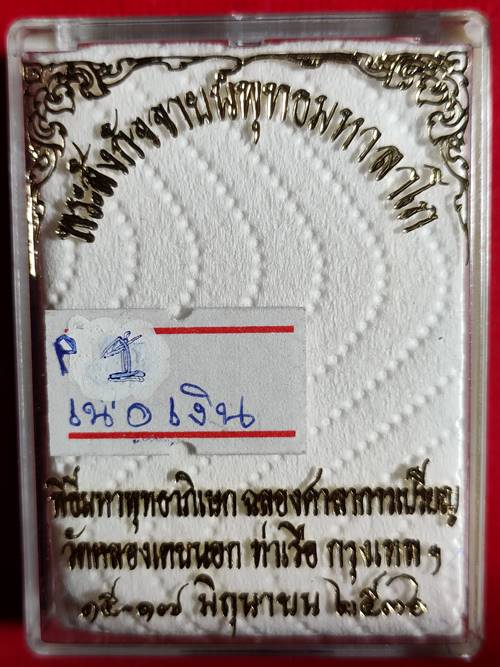 พระสังกัจจายน์พุทธมหาลาโภ
P 1
เน่อเงิน
พิธีมหาพุทธาภิเษก ฉลองศาลาการเปรียญ
วัดคลองเตยนอก ท่าเรือ กรุงเทพ ฯ
๑๕-๑๗ มิถุนายน ๒๕๓๖